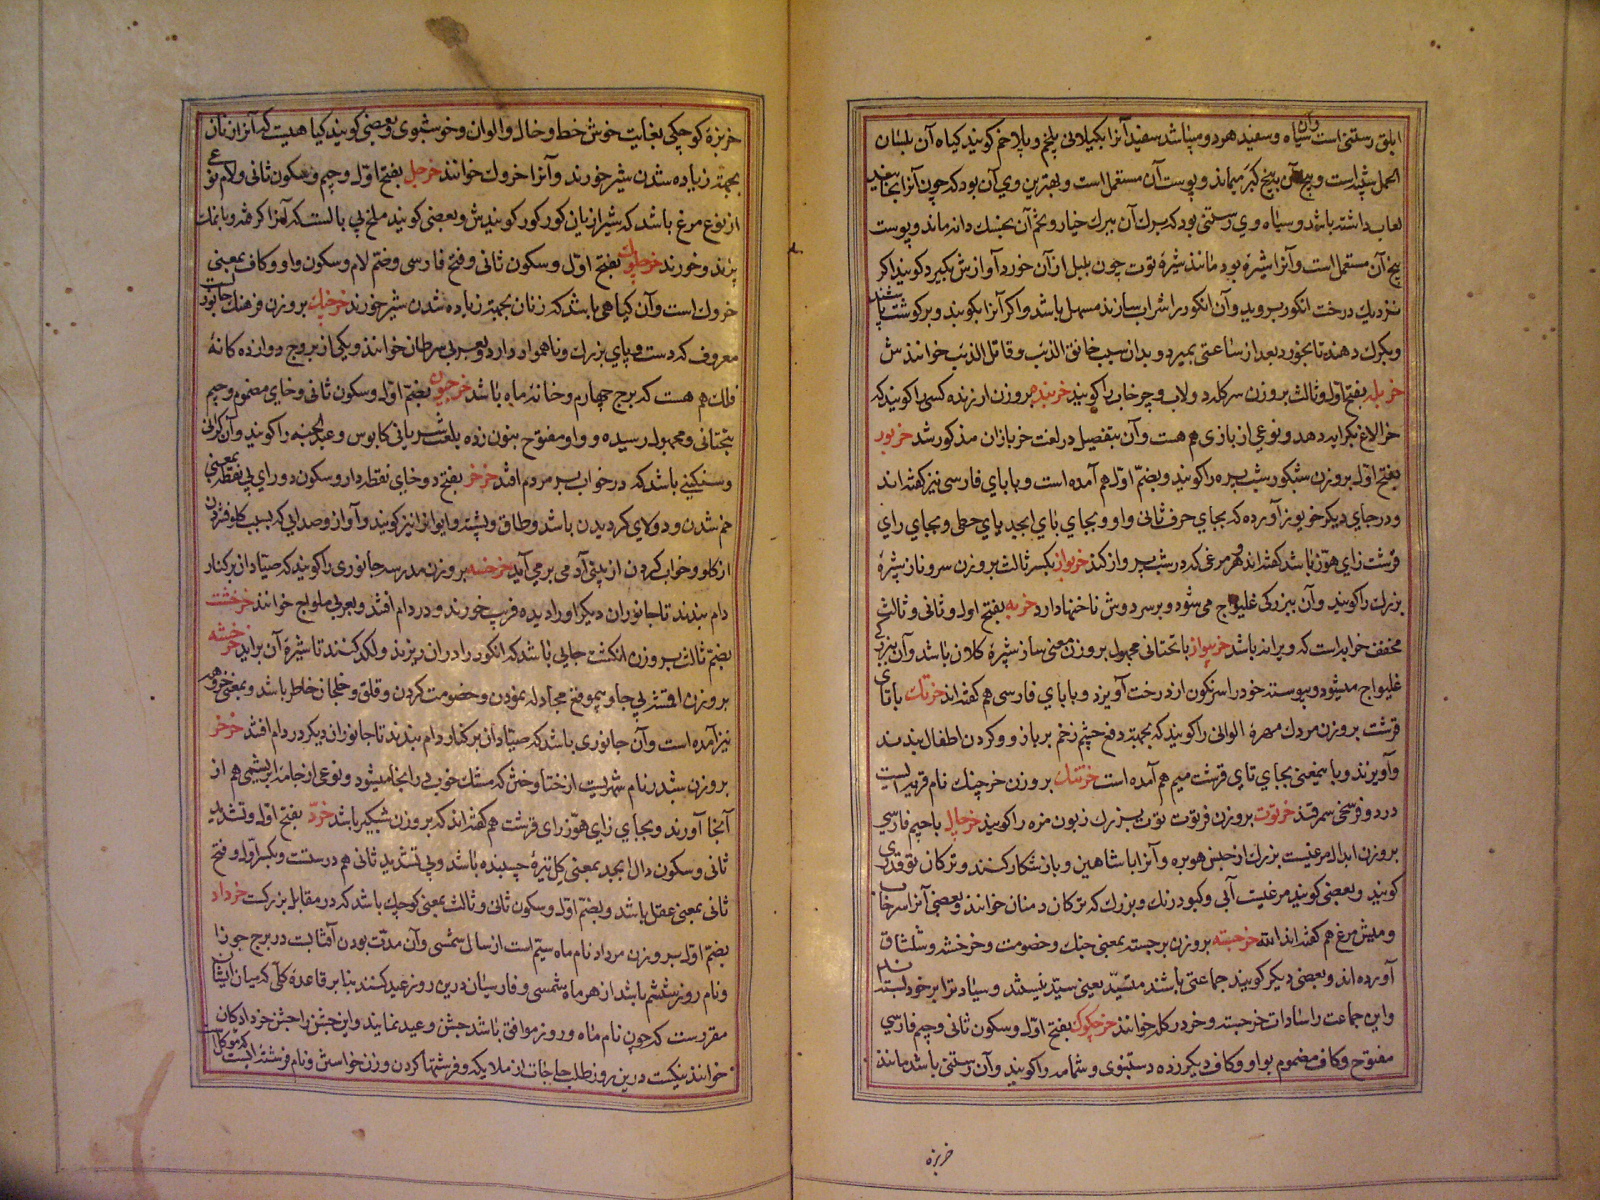 ابلق رستنی است سیاه و سفید هر دو میباشد سفید آنرا بکیلانی پلخم و پلاخم کویند کیاه آن بلبلان
الحمل شبیه است و بیخ آن ببیخ کبر میماند و پوست آن مستعمل است و بهترین وی آن بود که چون آنرا بخایند سفید
لعاب داشته باشد و سیاه وی رستنی بود که برک آن ببرک خیار و تخم آن بخسک دانه ماند و پوست
بیخ آن مستعمل است و آنرا شیرهٔ بود مانند شیرهٔ توت چون بلبل از آن خورد آوازش بگیرد کویند اکر
نزدیک درخت انکور بروید و آن انکور را شراب سازند مسهل باشد و اکر آنرا بکوبند و بر کوشت پاشند
و بکرک دهند تا بخورد بعد از ساعتی بمیرد و بدان سبب خانق الذئب و قاتل الذئب خوانندش
خربله بفتح اول و ثالث بروزن سرکله دولاب و چرخاب را کویند خربنده بروزن ارزنده کسی را کویند که
خر الاغ بکرایه دهد و نوعی از بازی هم هست و آن بتفصیل در لغت خربازان مذکور شد خربور
بفتح اول بروزن شبکور شب پره را کویند و بضم اول هم آمده است و با بای فارسی نیز کفته اند
و در جای دیکر خربوز آورده که بجای حرف ثانی واو و بجای بای ابجد یای حطی و بجای رای
قرشت زای هوز باشد کفته اند هر مرغی که در شب پرواز کند خربواز بکسر ثالث بروزن سرو ناز شپرهٔ
بزرک را کویند و آن ببزرکی غلیواج می شود و بر سر دوش ناخنها دارد خربه بفتح اول و ثانی و ثالث
مخفف خرابه است که ویرانه باشد خربیواز با تحتانی مجهول بروزن معنی ساز شپرهٔ کلان باشد و آن ببزرکی
غلیواج میشود و پیوسته خود را سرنکون از درخت آویزد و با بای فارسی هم کفته اند خرتک با تای
قرشت بروزن مردک مهرهٔ الوانی را کویند که بجهت دفع چشم زخم بر بازو و کردن اطفال بندند
و آویزند و باین معنی بجای تای قرشت میم هم آمده است خرتنک بروزن خرچنک نام قریه ایست
در دو فرسخی سمرقند خرتوت بروزن فرتوت توت بزرک زبون مزه را کویند خرجال با جیم فارسی
بروزن ابدال مرغیست بزرک از جنس هوبره و آنرا با شاهین و باز شکار کنند و ترکان توقدری
کویند و بعضی کویند مرغیست آبی و کبود رنک و بزرک که ترکان دمنان خوانند و بعضی آنرا سرخاب
و میش مرغ هم کفته اند الله خرجسته بروزن برجسته بمعنی جنک و خصومت و خرخشه و شلتاق
آورده اند و بعضی دیکر کویند جماعتی باشند متسید یعنی سید نیستند و سیادت را بر خود بسته اند
و این جماعت را سادات خرجسته و خر در کله خوانند خرجکوک بفتح اول و سکون ثانی و چیم فارسی
مفتوح و کاف مضموم بواو و کاف دیکر زده دستنبوی و شمامه را کویند و آن رستنی باشد مانند
خربزه
خربزهٔ کوچکی بغایت خوش خط و خال و الوان و خوشبوی و بعضی کویند کیاهیست که آنرا زنان
بجهت زیاده شدن شیر خورند و آنرا خروک خوانند خرجل بفتح اول و چیم و سکون ثانی و لام نوعی
از نوع مرغ باشد که شیرازیان کورکور کویندش و بعضی کویند ملخ بی بالست که آنرا کرفته و با نمک
پزند و خورند خرجلوک بفتح اول و سکون ثانی و فتح فارسی و ضم لام و سکون واو و کاف بمعنی
خروک است و آن کیاهی باشد که زنان بجهت زیاده شدن شیر خورند خرچنک بروزن فرهنک جانوریست
معروف که دست و پای بزرک و ناهموار دارد و بعربی سرطان خوانند و یکی از بروج دوازده کانهٔ
فلک هم هست که برج چهارم و خانهٔ ماه باشد خرجیون بضم اول و سکون ثانی و خای مضموم و جیم
بتحتانی مجهول رسیده و واو مفتوح بنون زده بلغت سریانی کابوس و عبدالجنه را کویند و آن کرانی
و سنکینی باشد که در خواب بر مردم افتد خرخر بفتح دو خای نقطه دار و سکون دو رای بی نقطه بمعنی
خم شدن و دولای کردیدن باشد و طاق و پشته و ایوان را نیز کویند و آواز و صدایی که بسبب کلو فشردن
از کلو و خواب کردن از بینی آدمی بر می آید خرخسه بروزن مدرسه جانوری را کویند که صیادان بر کنار
دام بندند تا جانوران دیکر او را دیده فریب خورند و در دام افتند و بعربی ملواح خوانند خرخشت
بضم ثالث بروزن انکشت جایی باشد که انکور را در آن ریزند و لکد کنند تا شیرهٔ آن براید خرخشه
بروزن اقمشه بی جا و بی موقع مجادله نمودن و خصومت کردن و قلق و خلجان خاطر باشد و بمعنی خروهه
نیز آمده است و آن جانوری باشد که صیادان بر کنار دام بندند تا جانوران دیکر در دام افتند خرخیز
بروزن شبدیز نام شهریست از ختا و ختن که مشک خوب از آنجا میشود و نوعی از جامهٔ ابریشمی هم از
آنجا آورند و بجای زای هوز رای قرشت هم کفته اند که بروزن شبکیر باشد خرد بفتح اول و تشدید
ثانی و سکون دال ابجد بمعنی کل تیرهٔ چسبنده باشد و بی تشدید ثانی هم درستست و بکسر اول و فتح
ثانی بمعنی عقل باشد و بضم اول و سکون ثانی و ثالث بمعنی کوچک باشد که در مقابل بزرکست خرداد
بضم اول بروزن مرداد نام ماه سیم است از سال شمسی و آن مدت بودن آفتابست در برج جوزا
و نام روز ششم باشد از هر ماه شمسی و فارسیان درین روز عید کنند بنا بر قاعدهٔ کلی که میان ایشان
مقررست که چون نام ماه و روز موافق باشد جشن و عید نمایند و این جشن را جشن خردادکان
خوانند نیکست درین روز طلب حاجات از ملایکه و فرشتها کردن و زن خواستن و نام فرشته ایست که موکل است